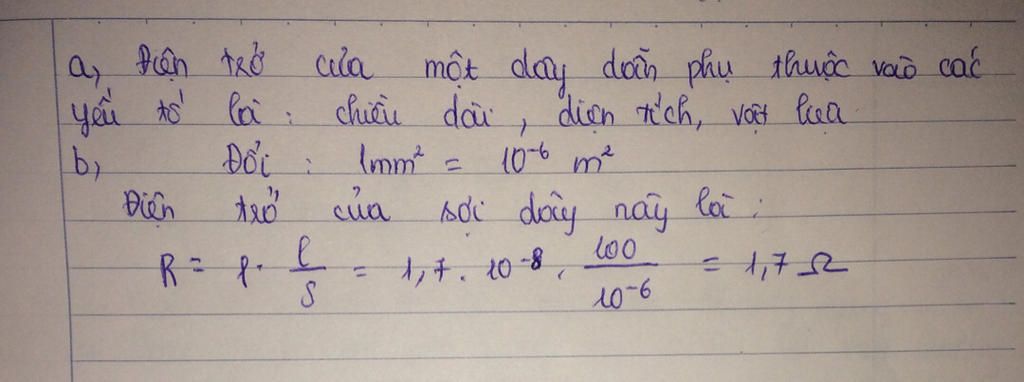 a, Điện trở của một dây dẫn phụ thuộc vào các
yếu tố là : chiều dài, diện tích, vật liệu
b, Đổi : 1mm² = 10⁻⁶ m²
Điện trở của sợi dây này là :
R = ρ . l/S = 1,7 . 10⁻⁸ . 100/10⁻⁶ = 1,7 Ω